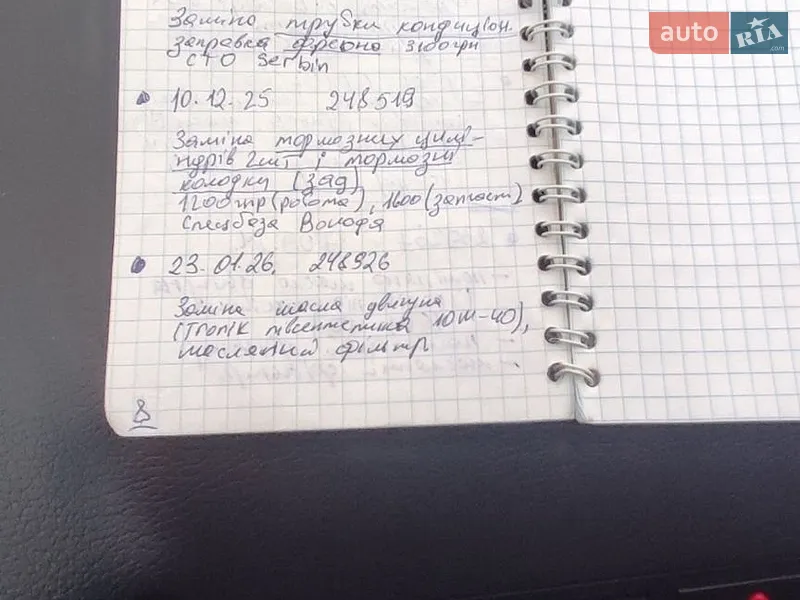 auto RIA .com
Заміна трубки кондиціон.
заправка фреона
СТО Serbin
10.12.25 248519
Заміна тормозних цилі-
ндрів 2шт і тормозні
колодки (зад)
1200гр (робота), 1600 (запчаст)
Спецбаза Володя
23.01.26. 248926
Заміна масла двигуна
(Тропік півсентетика 10W-40),
масляний фільтр
8